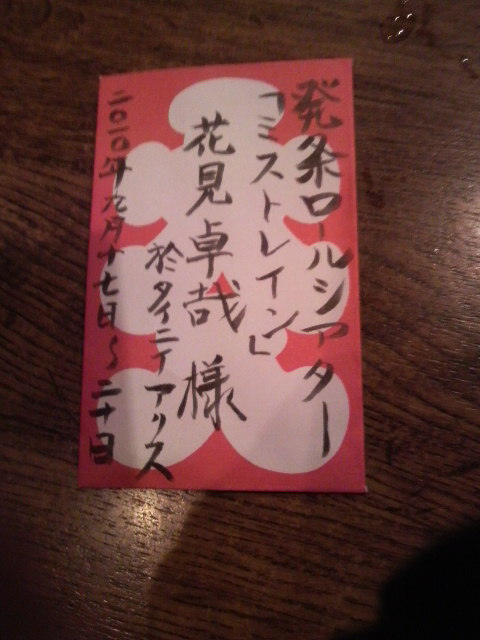 発条ロールシアター
「ミストレイン」
花見卓哉様
於タイニイアリス
二〇一〇年九月十七日〜二十日